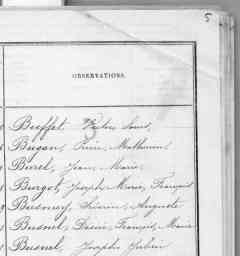 5
OBSERVATIONS.
Beuffet, Victor Louis,
Bugan, Pierre, Mathurin
Burel, Jean, Marie,
Burgot, Joseph, Marie, François
Busnouy, Auguste
Busnel, François, Marie
Busnel, Joseph, Julien